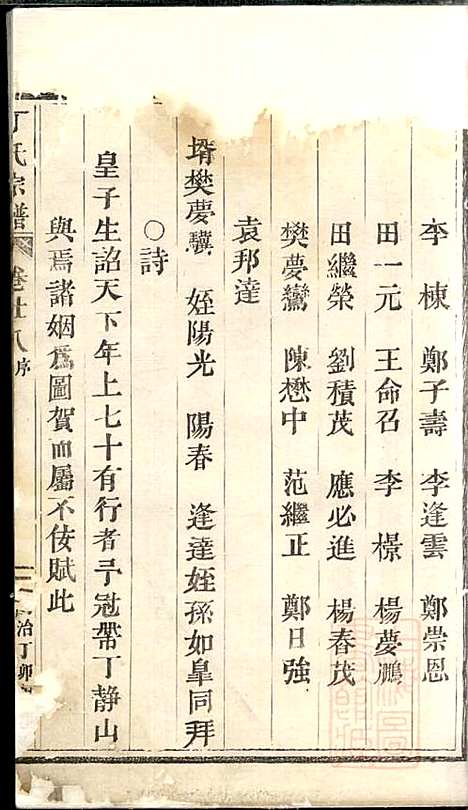 李棟　鄭子壽　李逢雲　鄭崇恩
田一元　王命召　李憬　楊夢鵬
田繼榮　劉積茂　應必進　楊春茂
樊夢鸞　陳懋中　范繼正　鄭日強
袁邦達
壻樊夢驥　姪陽光　陽春　逢達姪孫如皐同拜
○詩
皇子生詔天下年上七十有行者予冠帶丁靜山
與焉諸姻爲圖賀而屬不佞賦此
丁氏宗譜　卷廿八　序　治丁卯